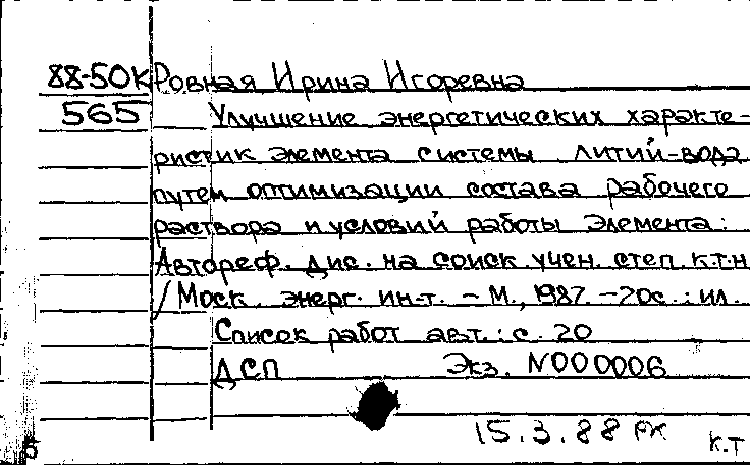 88-50К Ровная Ирина Игоревна
565 Улучшение энергетических характе-
ристик элемента системы литий-вода
путем оптимизации состава рабочего
раствора и условий работы элемента:
Автореф. дис. на соиск. учен. степ. к.т.н
/ Моск. энерг. ин-т. - М., 1987. - 20с. : ил.
Список работ авт.: с. 20
ДСП Экз. N000006
15.3.88
к.т
5